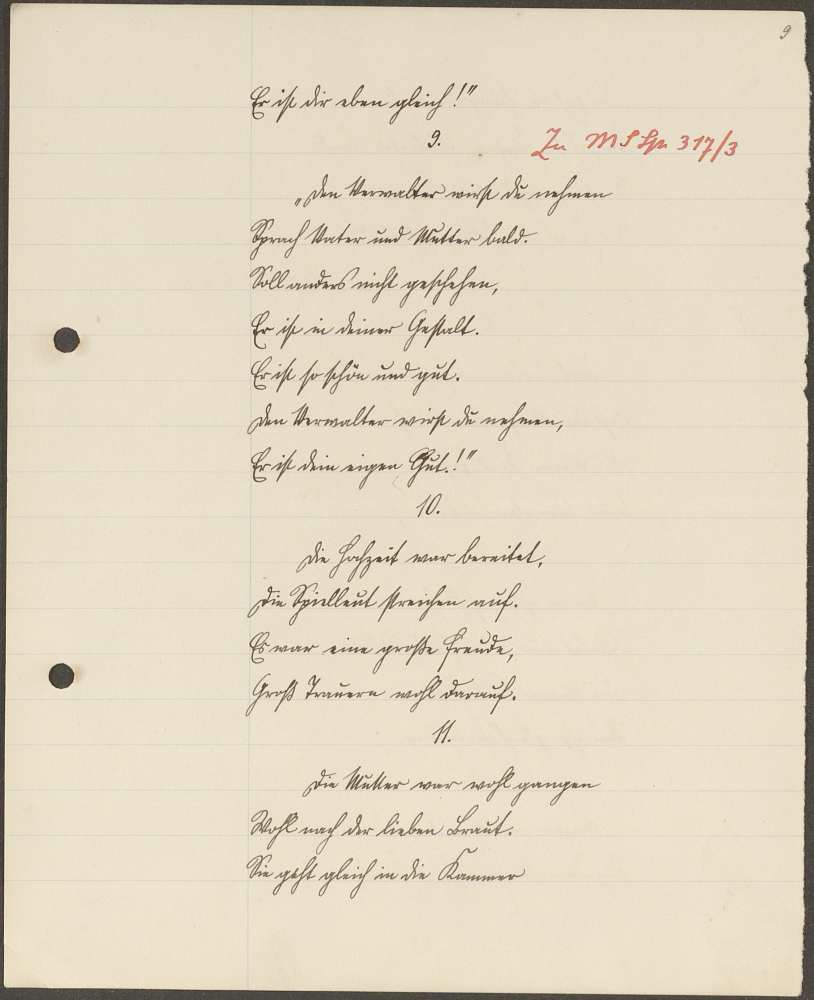 9
Er ist dir eben gleich!"
9.
Zu MS Lgr 317/3
„Den Verwalter wirst du nehmen
Sprach Vater und Mutter bald.
Soll anders nicht geschehen,
Er ist in deiner Gestalt.
Er ist so schön und gut.
Den Verwalter wirst du nehmen,
Er ist dein eigen Gut.!"
10.
Die Hochzeit war bereitet,
Die Spielleut streichen auf.
Es war eine große Freude,
Groß Trauern wohl darauf.
11.
Die Mutter war wohl gangen
Wohl nach der lieben Braut.
Sie geht gleich in die Kammer